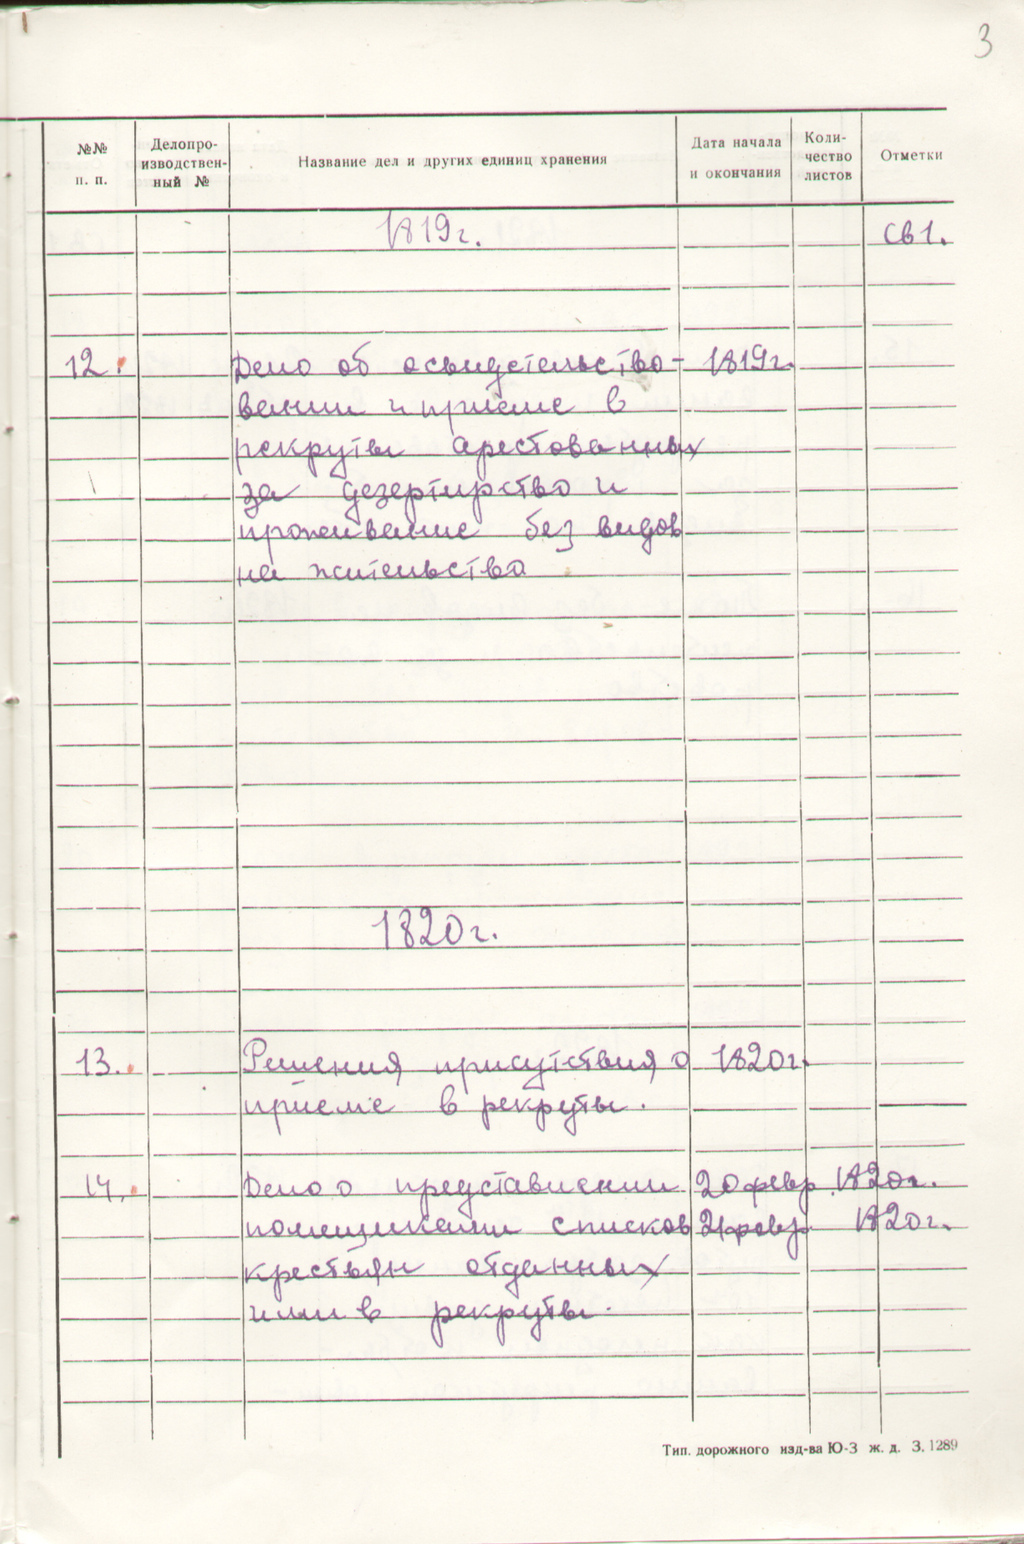 3
№№ п. п.
Делопро-изводствен-ный №
Название дел и других единиц хранения
Дата начала и окончания
Коли-чество листов
Отметки
1819г.
св1.
12. Дело об освидетельство- 1819г.
вании и приеме в
рекруты арестованных
за дезертирство и
проживание без видов
на жительство
1820г.
13. Решения присутствия о 1820г.
приеме в рекруты.
14. Дело о представлении 20 февр. 1820г.
помещиками списков 21 февр 1820г.
крестьян отданных
ими в рекруты.
Тип. дорожного изд-ва Ю-З ж. д. З. 1289